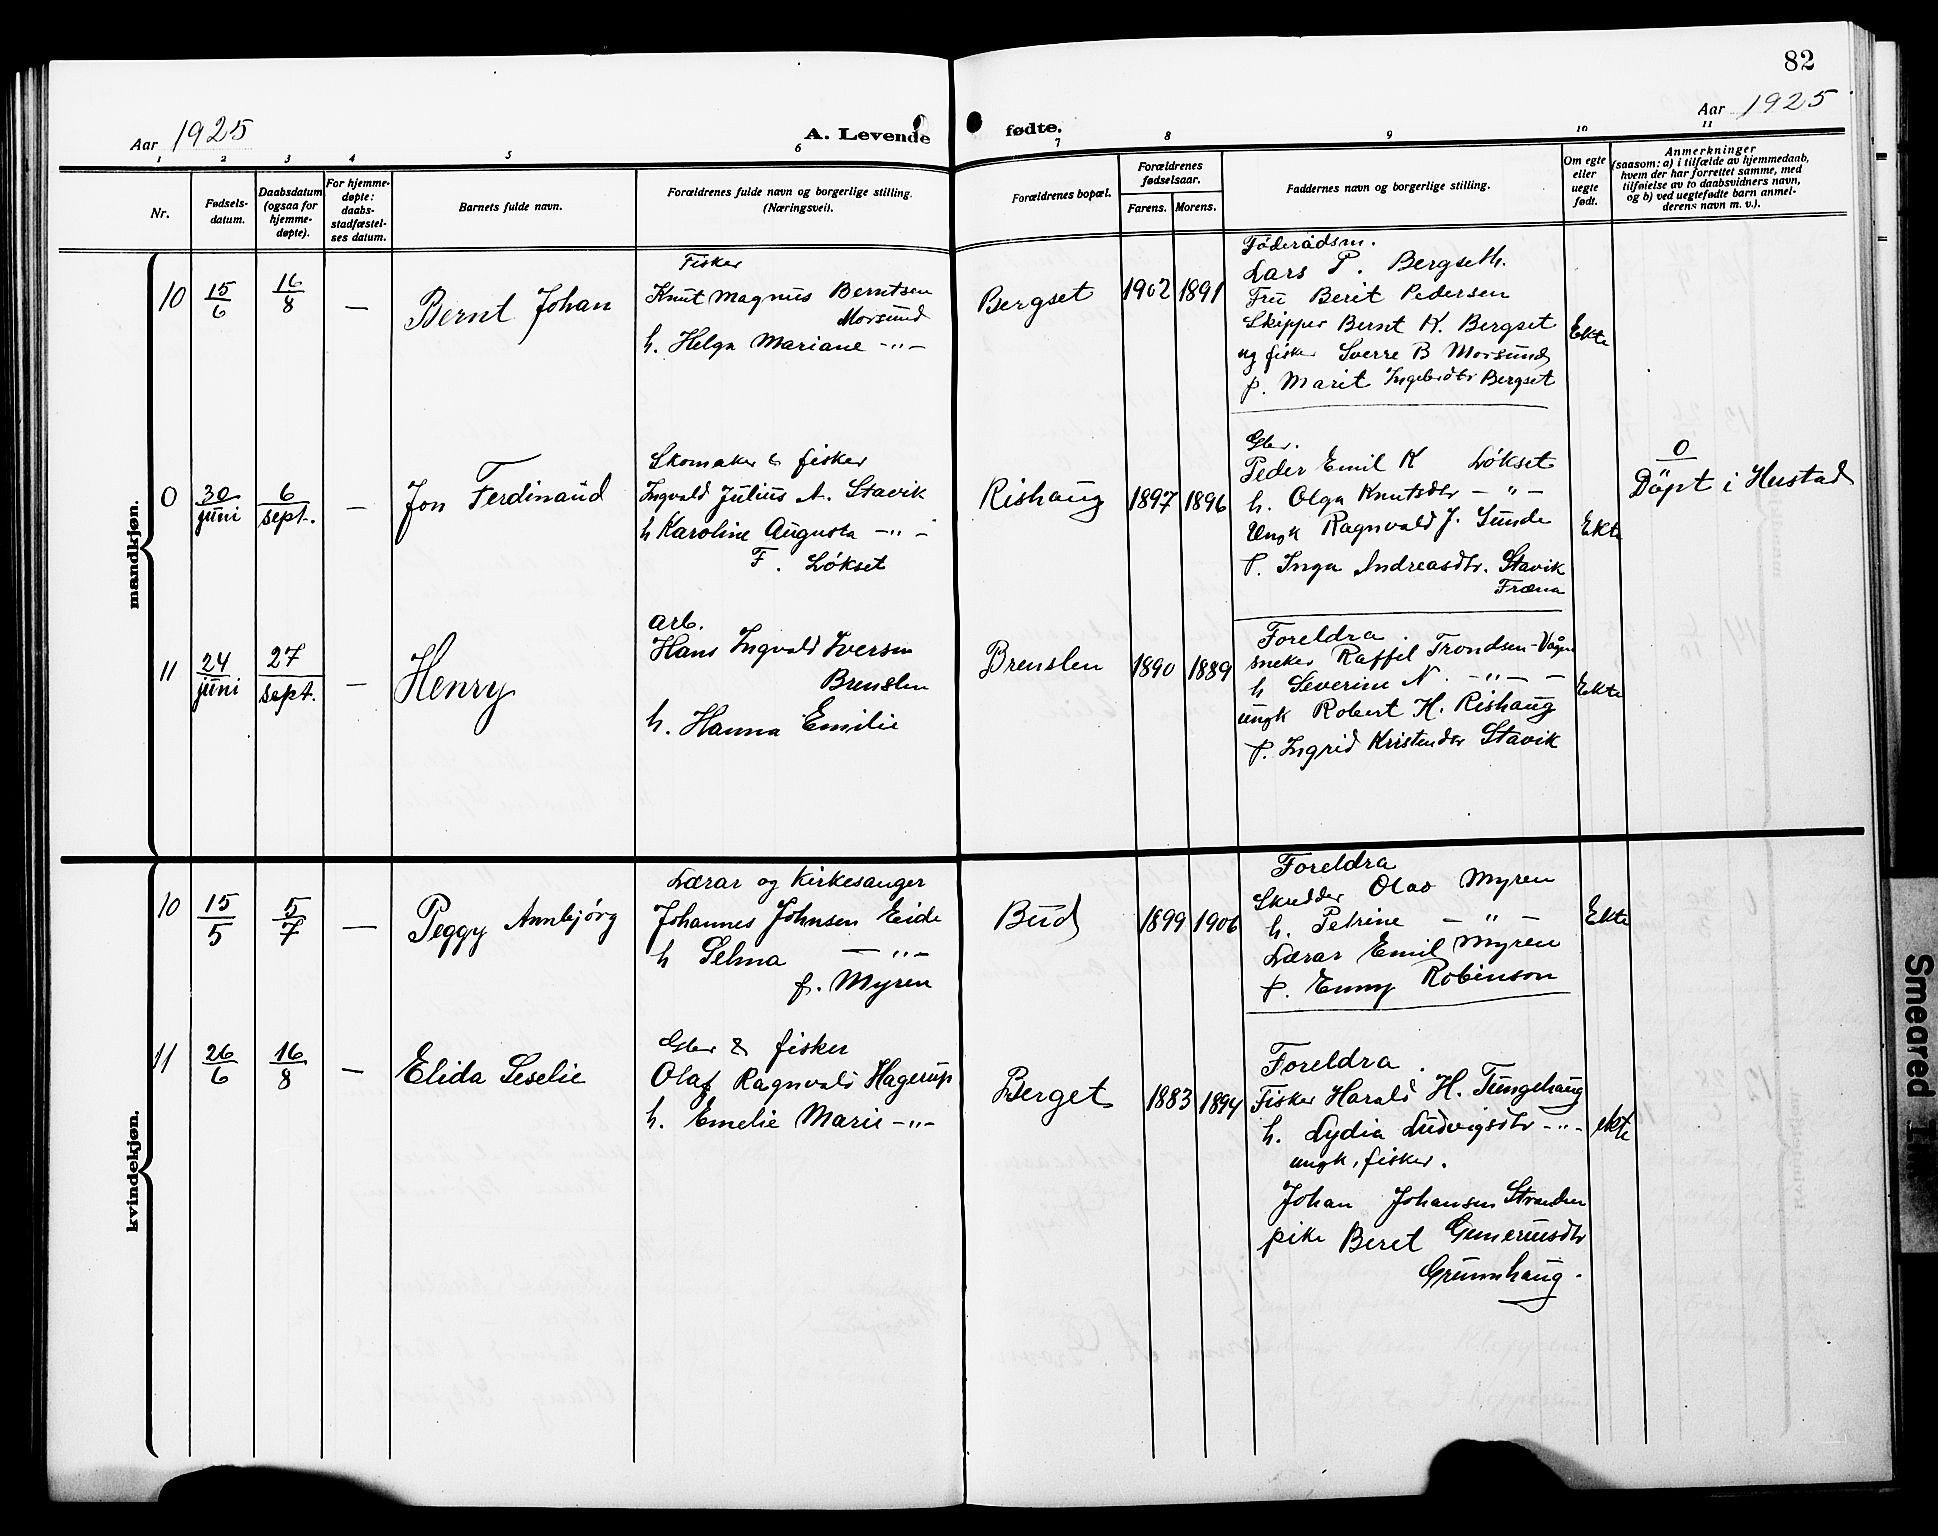 82
Aar 1925
A. Levende fødte.
Aar 1925
1 2 3 4 5 6 7 8 9 10 11
Nr.
Fødsels-
datum.
Daabsdatum
(ogsaa for
hjemme-
døpte).
For hjemme-
døpte:
daabs-
stadfæstel-
ses datum.
Barnets fulde navn.
Forældrenes fulde navn og borgerlige stilling.
(Næringsvei).
Forældrenes bopæl.
Forældrenes
fødselsaar.
Farens. Morens.
Faddernes navn og borgerlige stilling.
Om egte
eller
uegte
født.
Anmerkninger
(saasom: a) i tilfælde av hjemmedaab,
hvem der har forrettet samme, med
tilføielse av to daabsvidners navn,
og b) ved uegtefødte barn anmel-
derens navn m. v.).
mandkjøn.
10 15/6 16/8 — Bernt Johan
Fisker
Knut Magnus Berntsen
Morsund
h. Helga Mariane -"-
Bergset 1902 1891
Föderådsm.
Lars P. Bergseth.
Fru Berit Pedersen
Skipper Bernt K. Bergset
og fisker Sverre B Morsund
p. Marit Ingebrdtr Bergset
Ekte
0 30/juni 6/sept. — Jon Ferdinand
Skomaker & fisker
Ingvald Julius A. Stavik
h Karoline Augusta -"-
F. Løkset
Rishaug 1897 1896
Gbr.
Peder Emil K Løkset
h. Olga Knutsdtr - " -
Ungk Ragnvald J. Sunde
P. Inga Andreasdtr. Stavik
Fræna
Ekte
0
Döpt i Hustad
11 24/juni 27/sept. — Henry
arb.
Hans Ingvald Iversen
Brenslen
h. Hanna Emilie
Brenslen 1890 1889
Foreldra.
sneker Raffel Trondsen-Vågen
h Severine N. -"- -
ungk Robert H. Rishaug
P. Ingrid Kristendtr Stavik
Ekte
kvindekjøn.
10 15/5 5/7 — Peggy Annbjørg
Lærar og Kirkesanger
Johannes Johnsen Eide
h Selma — "-
f. Myren
Bud 1899 1906
Foreldra
Skredder Olav Myren
h. Petrine - " -
Lærar Emil Myren
P. Enny Robinson
Ekte
11 26/6 16/8 — Elida Seselie
Gbr & fisker
Olaf Ragnvald Hagerup
h. Emelie Marie -"-
Berget 1883 1894
Foreldra.
Fisker Harald H. Tungehaug
h. Lydia Ludvigsdtr -"-
ungk, fisker.
Johan Johansen Stranden
pike Beret
Grunnhaug.
ekte
Smeared